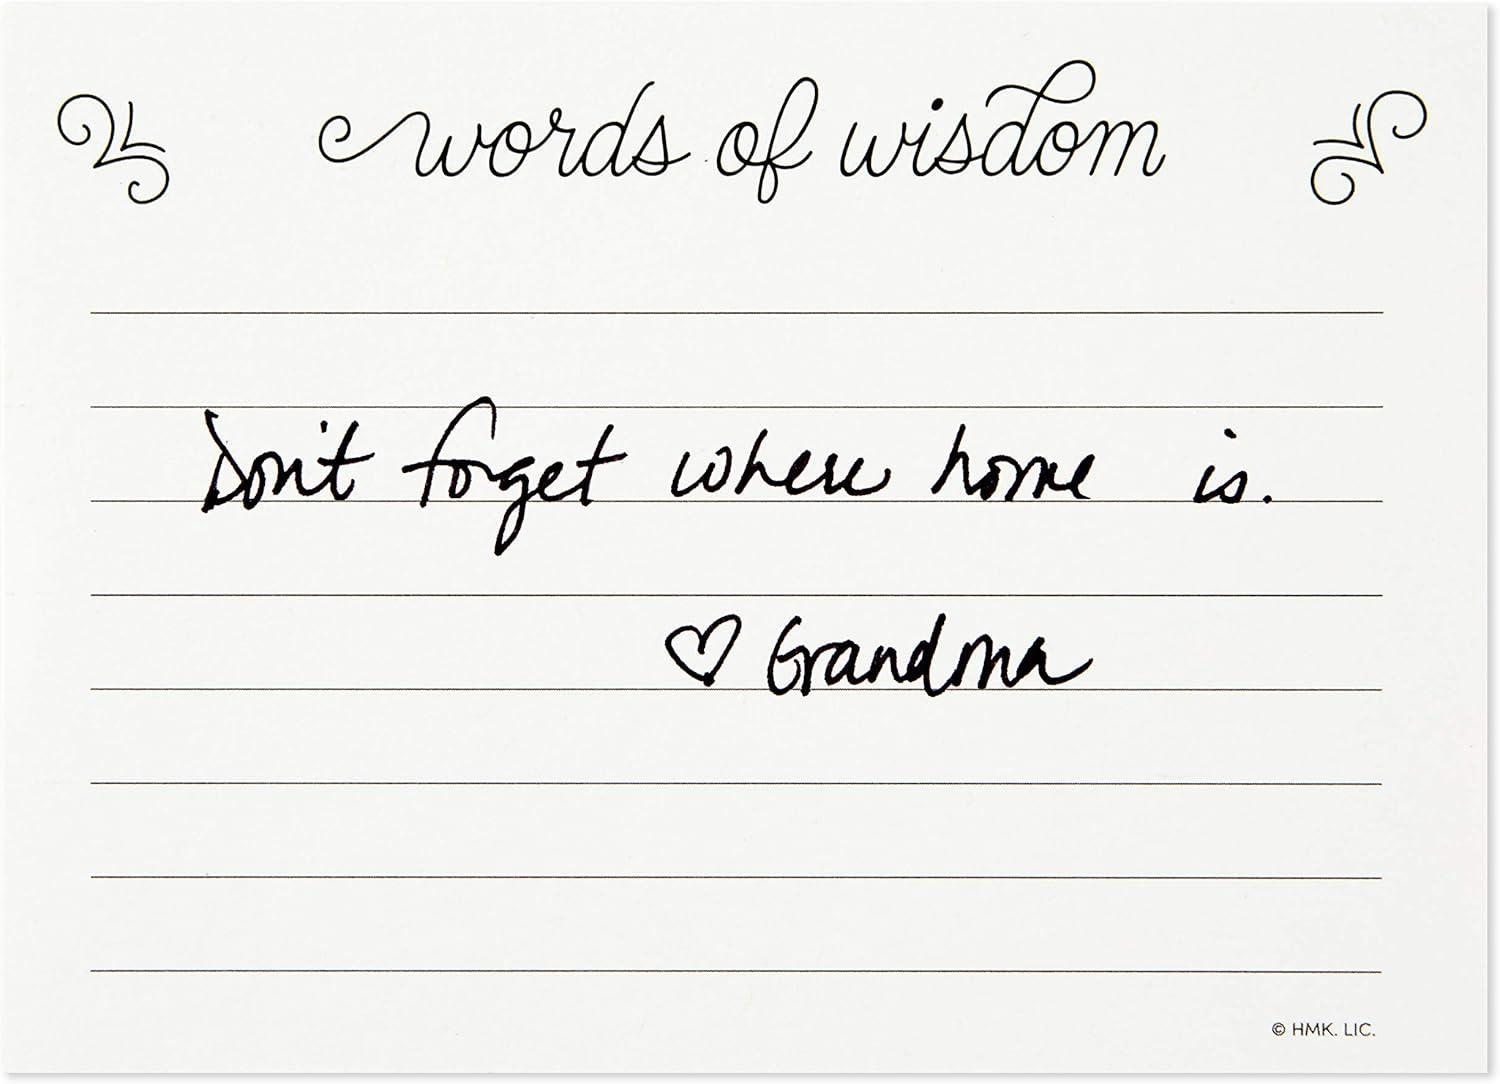 words of wisdom
Don't forget where home is.
♡ Grandma
© HMK. LIC.